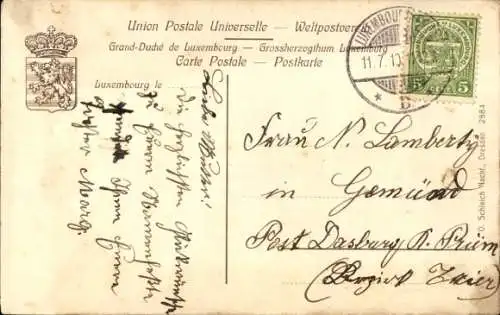 Union Postale Universelle — Weltpostverein
Grand-Duché de Luxembourg — Grossherzogthum Luxemburg
Carte Postale — Postkarte
Luxembourg le
LUXEMBOURG
11.7.10
B
5 5
O. Schleich Nachf., Dresden 2984
Frau N. Lambertz
in Gemünd
Post Dasburg K. Prüm
(Bezirk Trier)
Liebe Mutter!
die herzlichsten Glückwünsche
zu Ihrem Namensfeste
Ihnen Ihre
Marg.